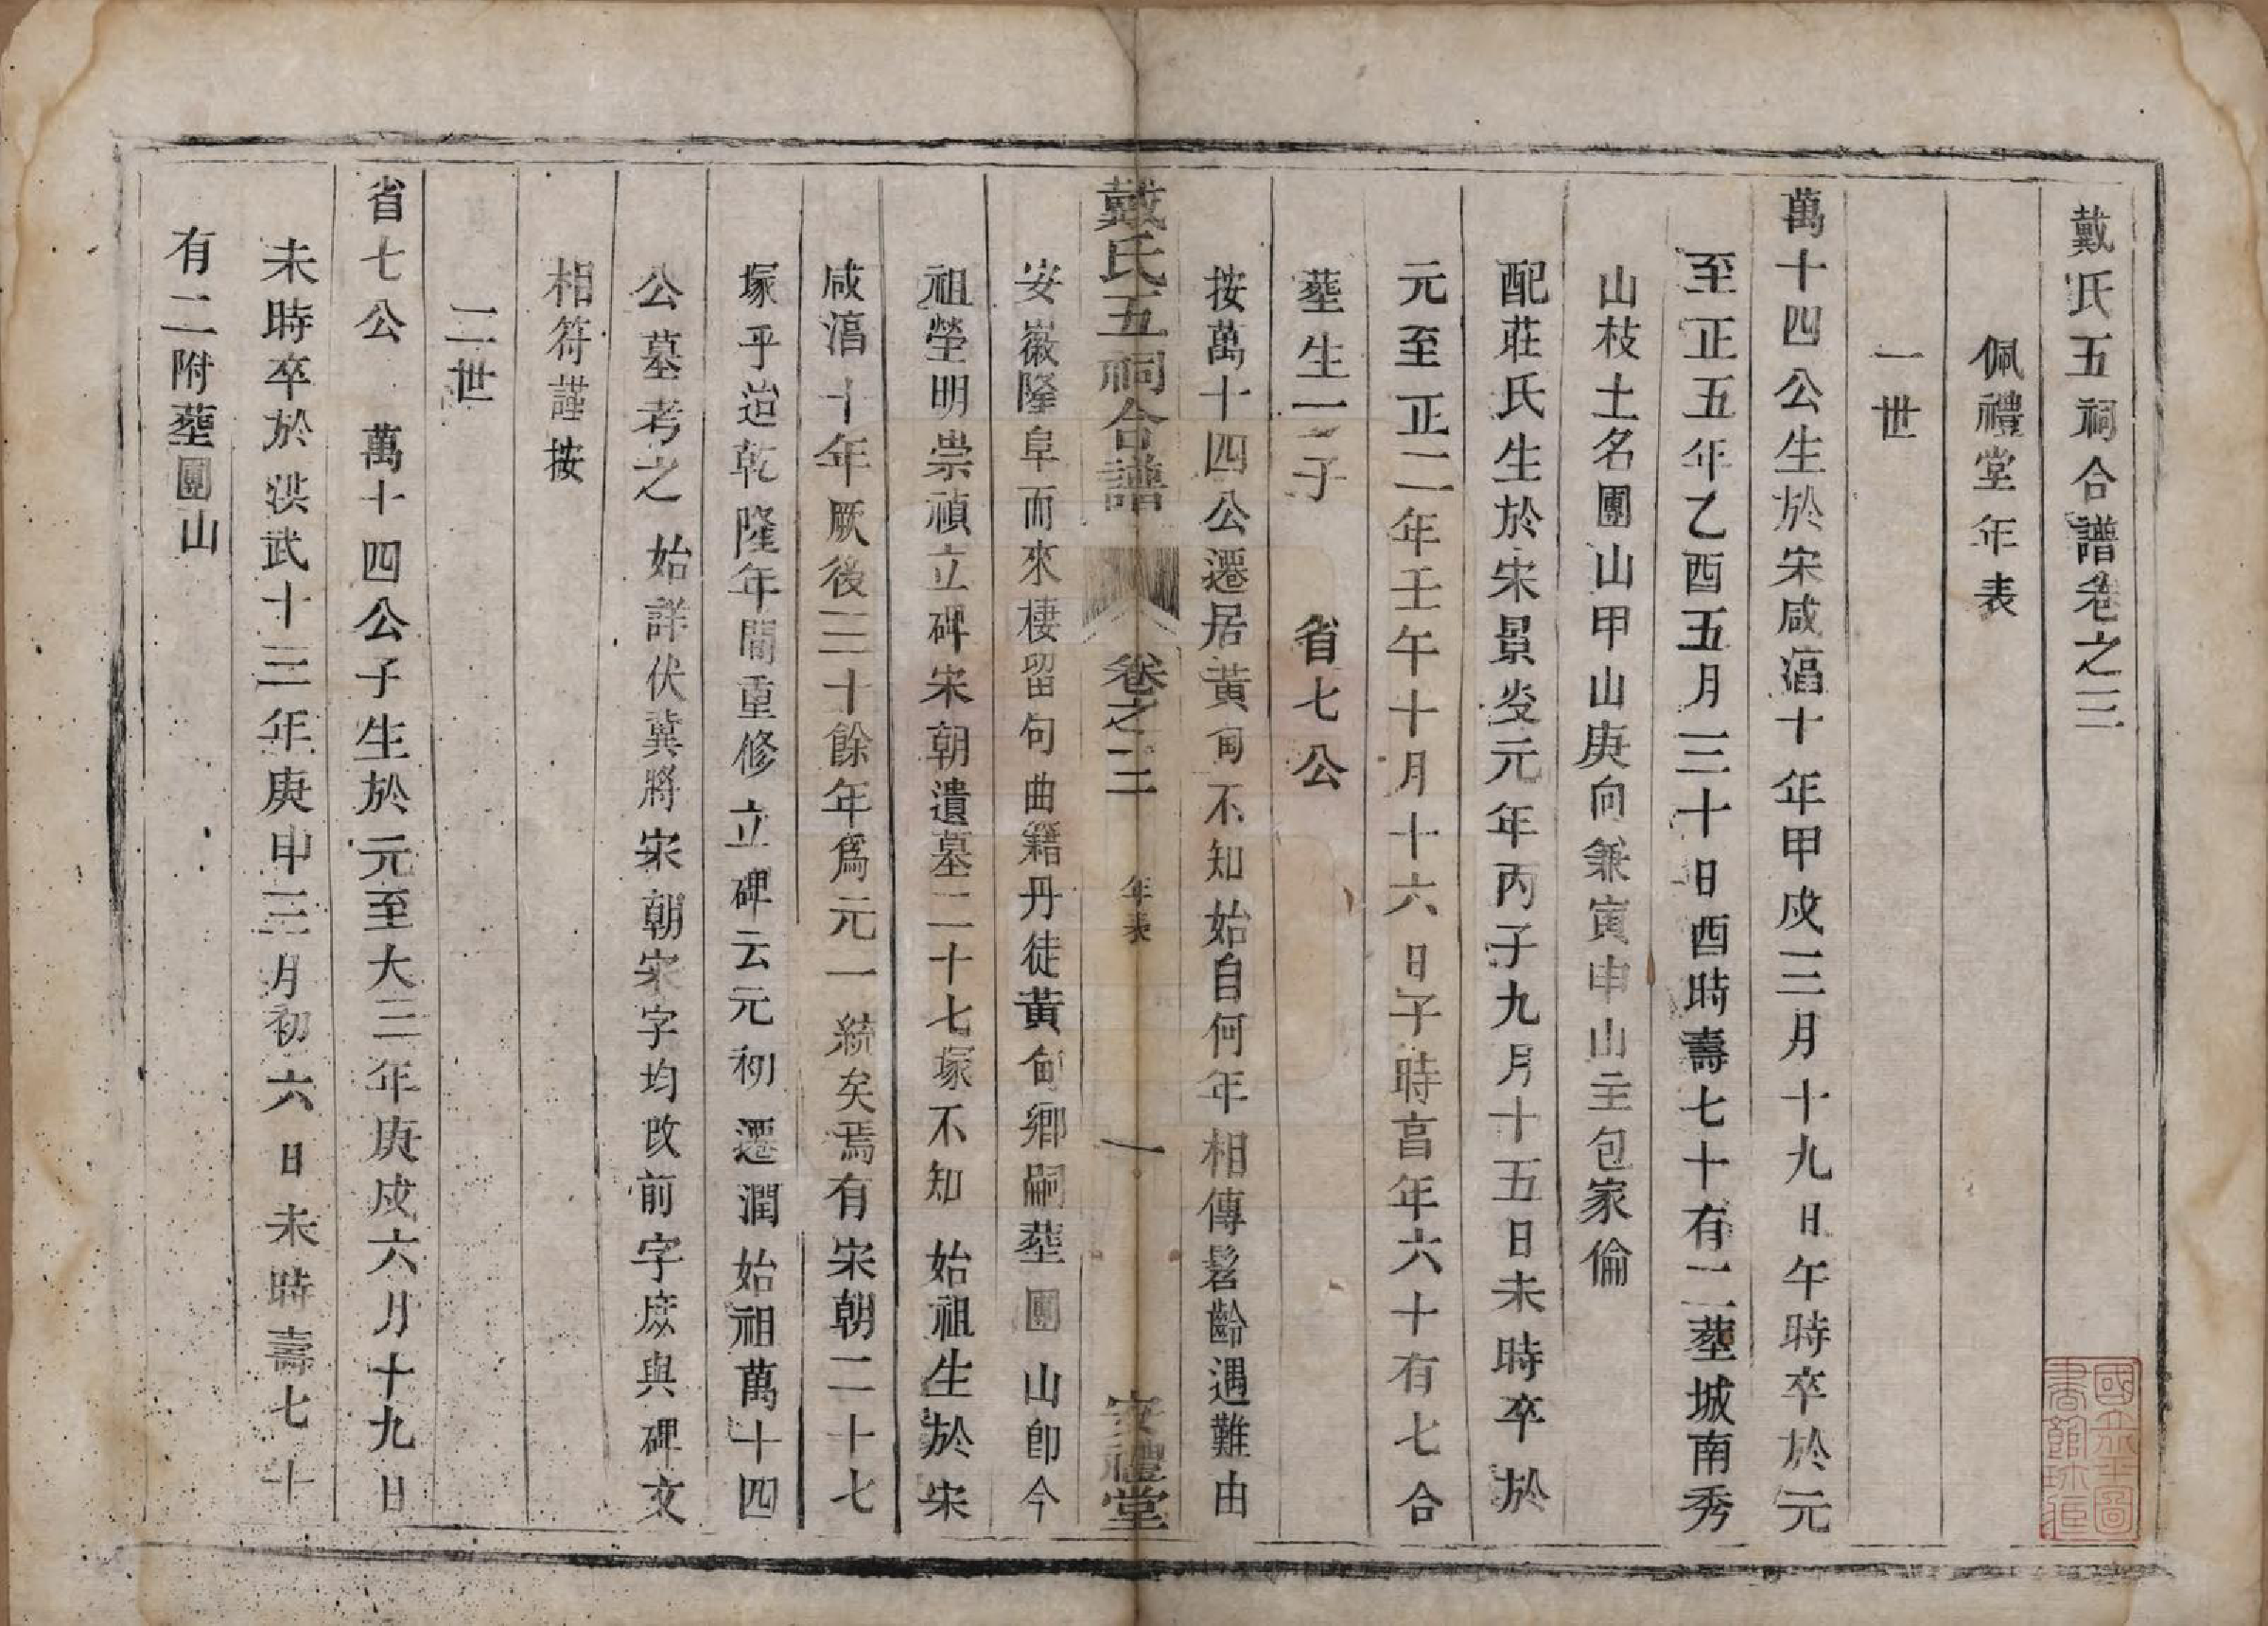 戴氏五祠合譜卷之三
佩禮堂年表
一世
萬十四公生於宋咸湻十年甲戌三月十九日午時卒於元
至正五年乙酉五月三十日酉時壽七十有二塟城南秀
山枝土名團山甲山庚向兼寅申山主包家倫
配莊氏生於宋景炎元年丙子九月十五日未時卒於
元至正二年壬午十月十六日子時亯年六十有七合
塟生一子 省七公
按萬十四公遷居黃甸不知始自何年相傳髫齡遇難由
戴氏五祠合譜 卷之三 年表 一 安禮堂
安徽隆阜而來棲留句曲籍丹徒黃甸鄉嗣塟團山卽今
祖塋明崇禎立碑宋朝遺墓二十七塚不知 始祖生於宋
咸湻十年厥後三十餘年爲元一統矣焉有宋朝二十七
塚乎迨乾隆年間重修立碑云元初遷潤始祖萬十四
公墓考之 始詳伏冀將宋朝宋字均改前字庶與碑文
相符謹按
二世
省七公 萬十四公子生於元至大三年庚戌六月十九日
未時卒於洪武十三年庚申三月初六日未時壽七十
有二附塟團山
國立北平圖書館珍藏